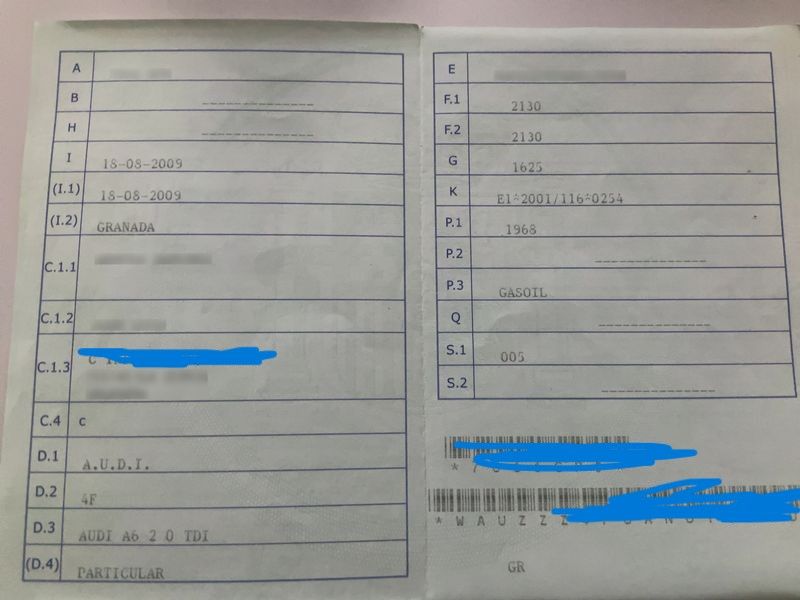 A
B -------------
H -------------
I 18-08-2009
(I.1) 18-08-2009
(I.2) GRANADA
C.1.1
C.1.2
C.1.3 C
C.4 C
D.1 A.U.D.I.
D.2 4F
D.3 AUDI A6 2 0 TDI
(D.4) PARTICULAR
E
F.1 2130
F.2 2130
G 1625
K E1*2001/116*0254
P.1 1968
P.2 -------------
P.3 GASOIL
Q -------------
S.1 005
S.2 -------------
* W A U Z Z Z
GR